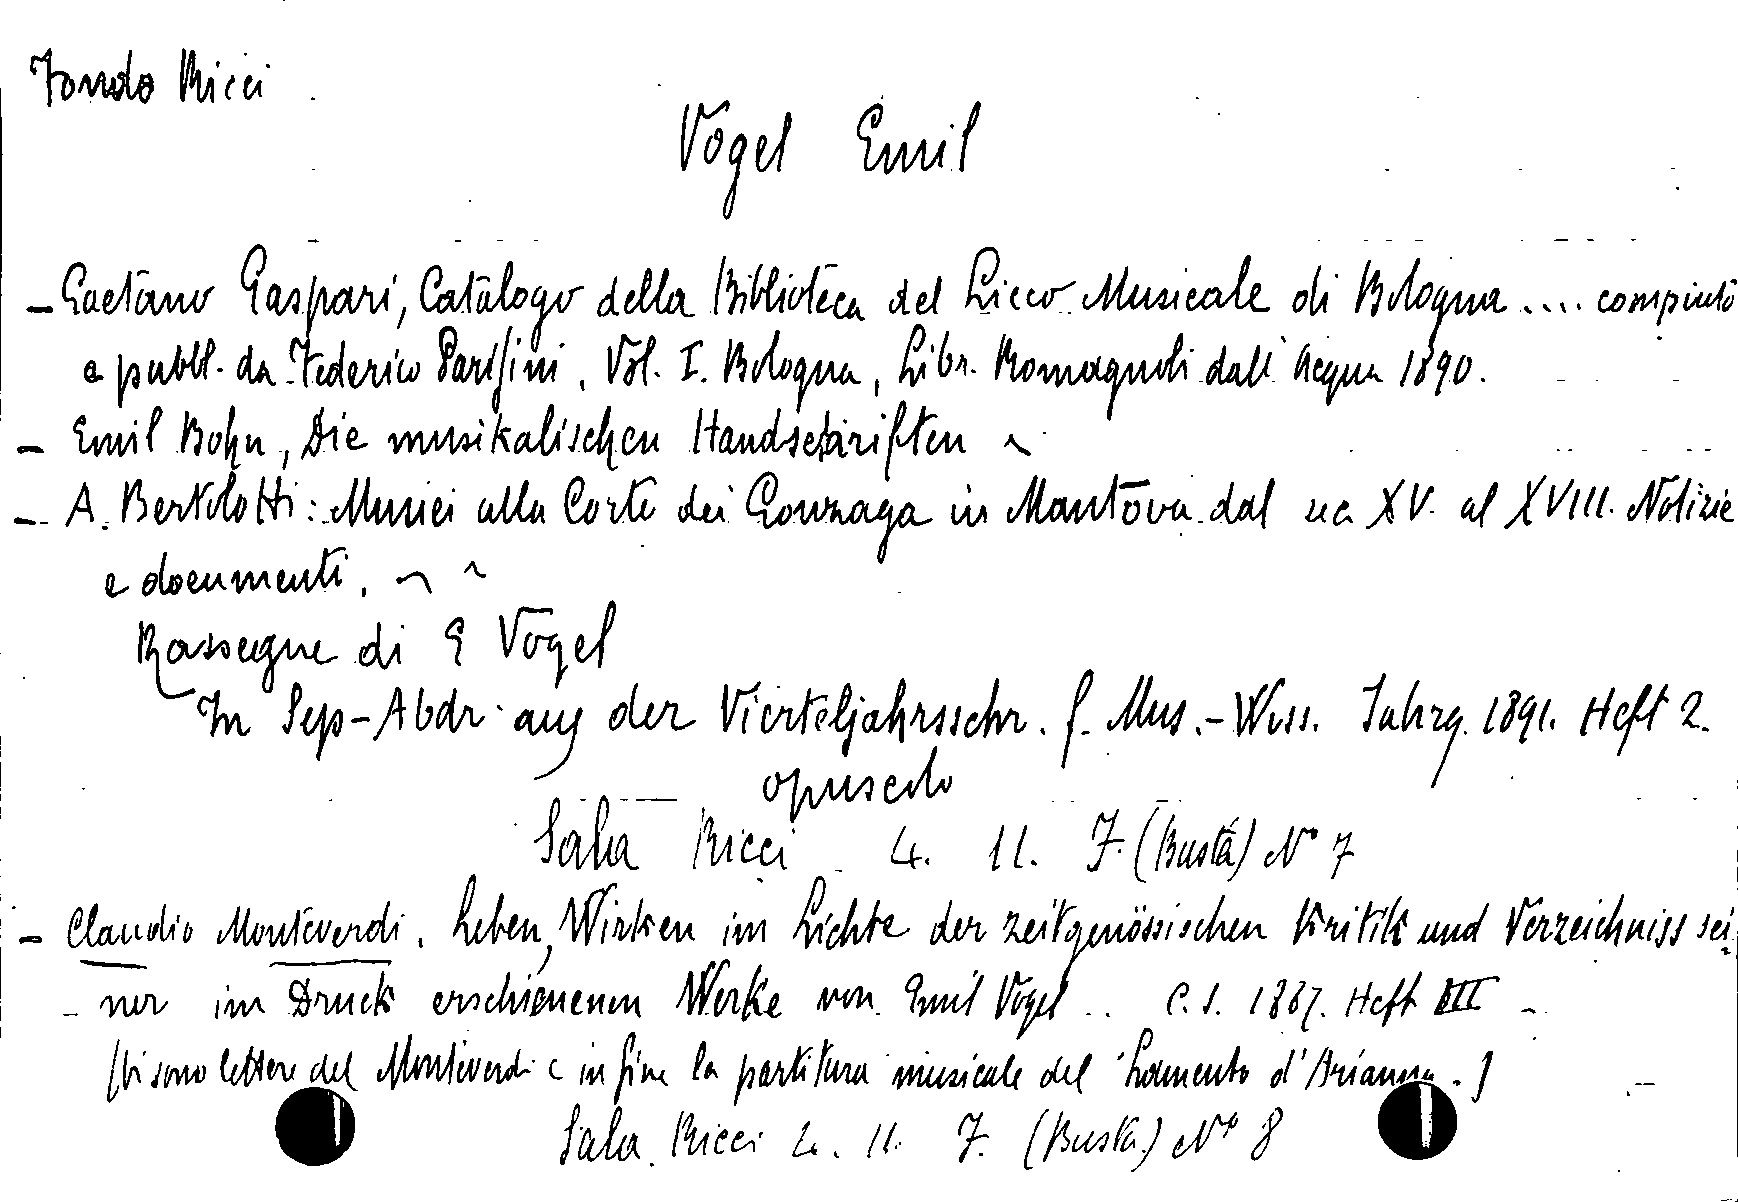 Fondo Ricci
Vogel Emil
- Gaetano Gaspari, Catalogo della Biblioteca del Liceo Musicale di Bologna .... compiuto
e pubbl. da Federico Parisini, Vol. I. Bologna, Libr. Romagnoli dall'Acqua 1890.
- Emil Bohn, Die musikalischen Handschriften
- A. Bertolotti: Musici alla Corte dei Gonzaga in Mantova dal XV. al XVIII. Notizie
e documenti.
Rassegne di E Vogel
In Sep-Abdr. aus der Vierteljahrsschr. f. Mus.-Wiss. Jahrg. 1891. Heft 2.
opuscolo
Sala Ricci 4. 11. F. (Busta) N° 7
- Claudio Monteverdi. Leben, Wirken im Lichte der zeitgenössischen Kritik und Verzeichniss sei-
ner im Druck erschienenen Werke von Emil Vogel .. c. s. 1887. Heft III
(vi sono lettere del Monteverdi e in fine la partitura musicale del Lamento d'Arianna.)
Sala Ricci 4. 11. F. (Busta) N° 8